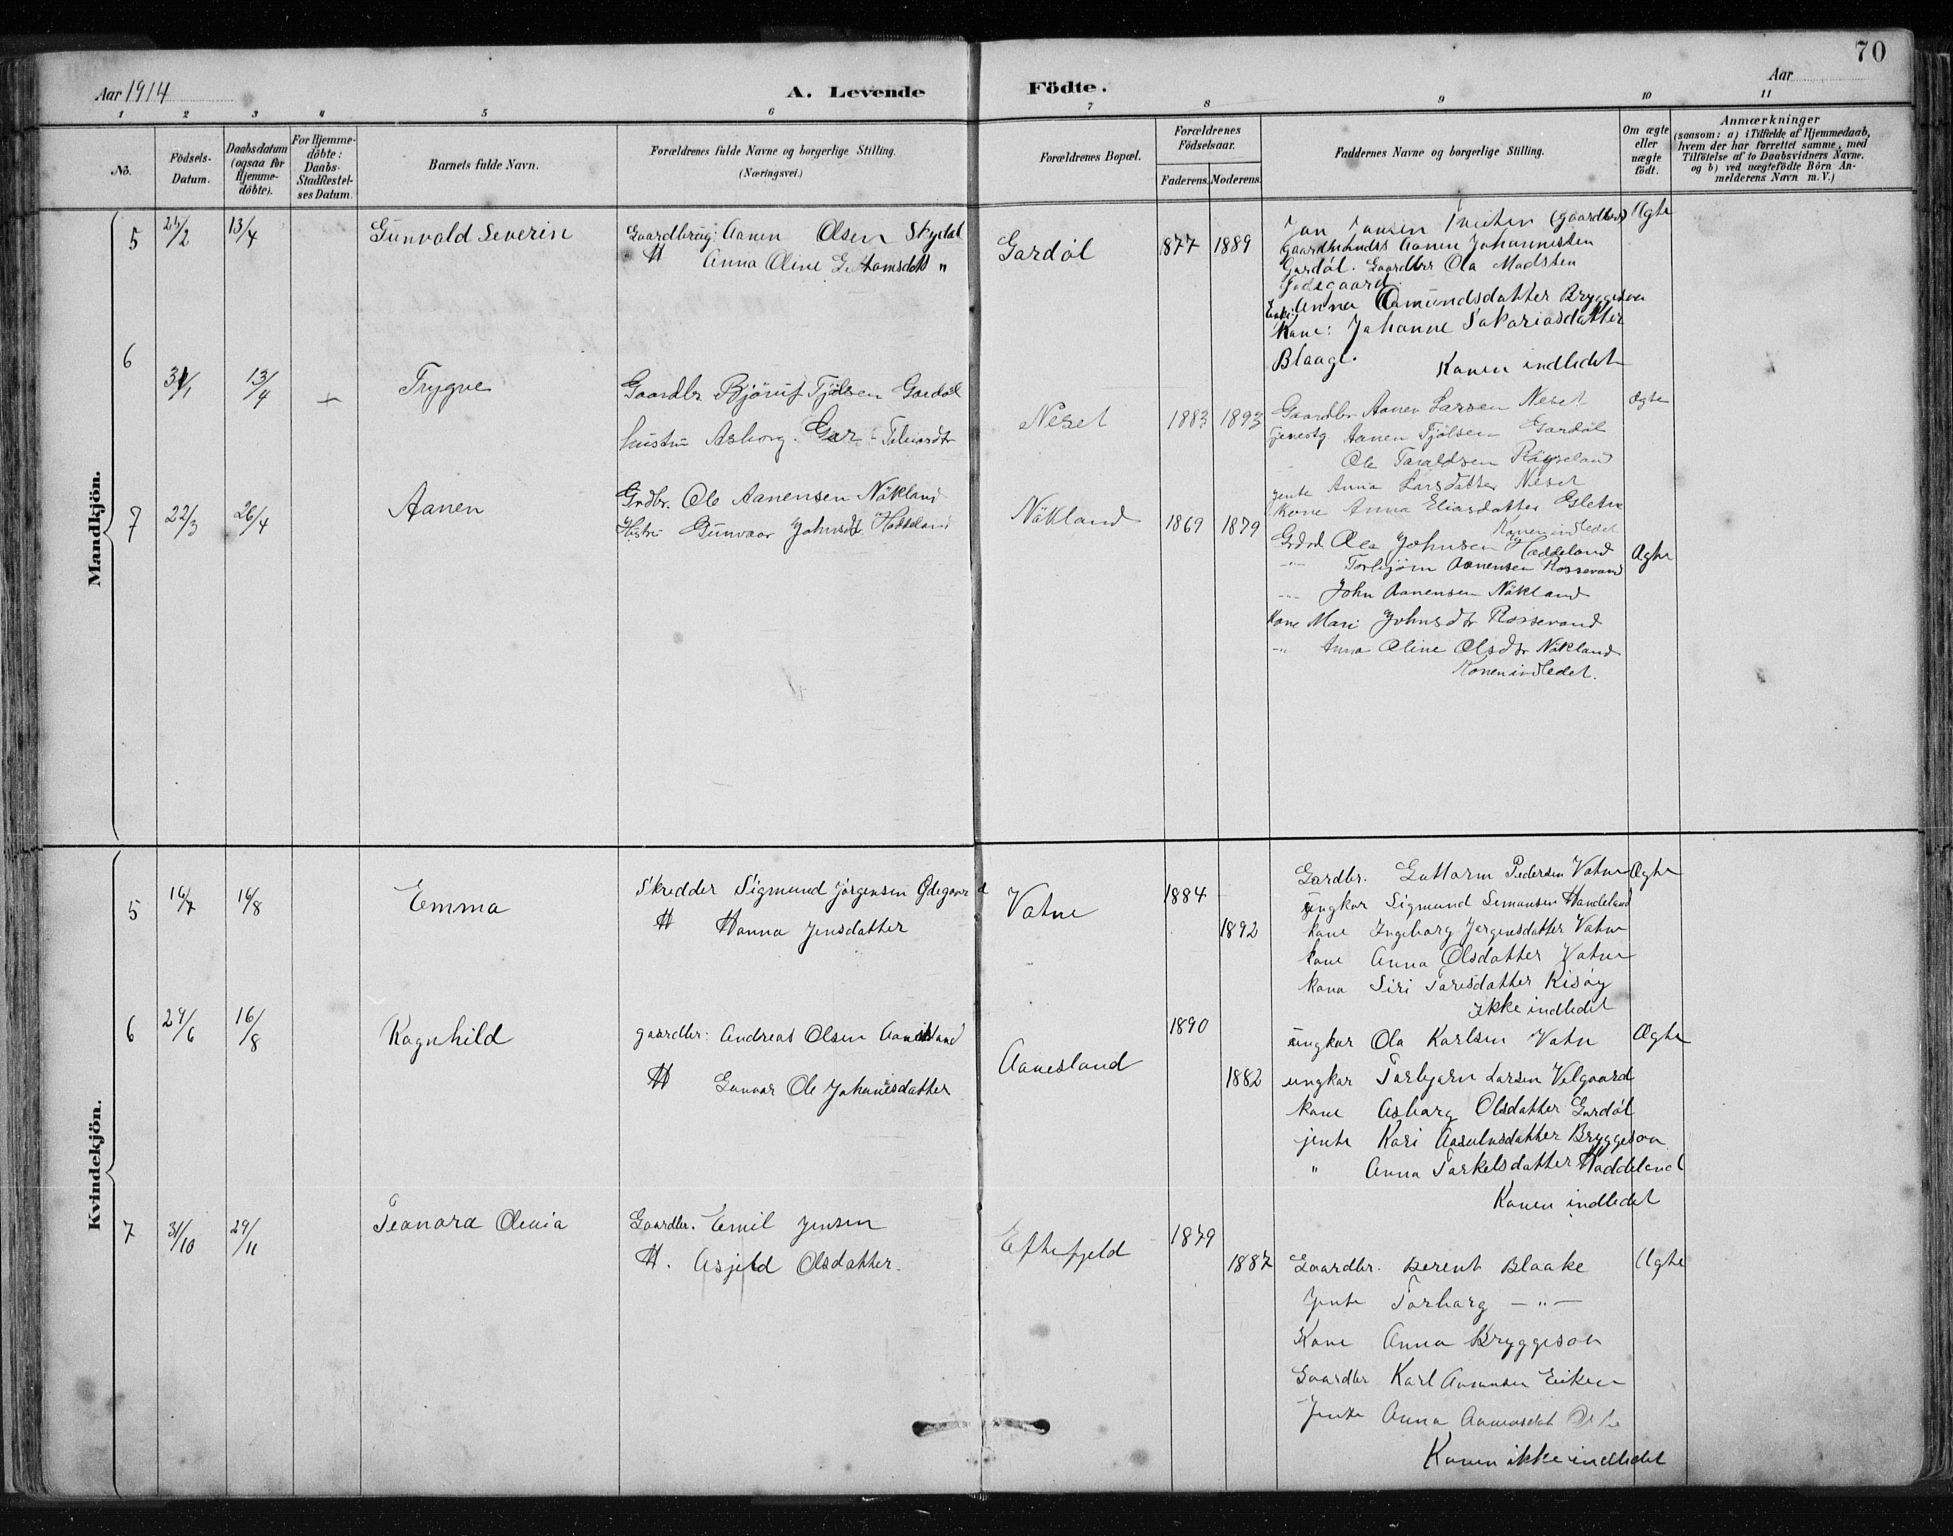 70
Aar 1914
A. Levende
Födte.
Aar
1 2 3 4 5 6 7 8 9 10 11
No.
Födsels-Datum.
Daabsdatum (ogsaa for Hjemme-döbte).
For Hjemme-döbte: Daabs-Stadfæstel-ses Datum.
Barnets fulde Navn.
Forældrenes fulde Navne og borgerlige Stilling.
(Næringsvei.)
Forældrenes Bopæl.
Forældrenes Födselsaar.
Faderens. Moderens.
Faddernes Navne og borgerlige Stilling.
Om ægte eller uægte födt.
Anmærkninger
(saasom: a) i Tilfælde af Hjemmedaab,
hvem der har forrettet samme, med
Tilföielse af to Daabsvidners Navne,
og b) ved uægtefödte Börn An-
melderens Navn m. V.)
Mandkjön.
5 13/4 Gunvald Severin
Gaardbrug: Aanen Olsen
H Anna Oline
Gardøl 877 1889
Jan Jansen (gaardbr) Ægte
Aanen Johannesen
Gardøl. Gaardbr Ola Madssen
Ødegaard
Enke: Anna Aamundsdatter Bryggesaa
Kone: Johanne Sakariasdatter
Blaage.
Konen indledet
6 31/1 13/4 + Trygve
Gaardbr Bjørulf Tjølsen Gardøl
hustru Asborg
Neset 1883 1893
Gaardbr. Aanen Larsen Neset Ægte
Aanen Tjølsen Gardøl
Ole Taraldsen Røyseland
jente Anna Larsdatter Neset
kone Anna Eliasdatter
Konen indledet
7 22/3 26/4 Aanen
Grdbr. Ole Aanensen Nökland
Hustru Gunvaar Johnsdt. Haddeland
Nökland 1869 1879
Ole Johnsen Haddeland Ægte
-"- Torbjørn Aanensen Rossevand
-"- John Aanensen Nökland
Kone Mari Johnsdtr Rossevand
-"- Anna Oline Olsdtr Nökland
Konen indledet.
Kvindekjön.
5 16/7 16/8 Emma
Skredder Sigmund Jørgensen Ødegaard
H Hanna Jensdatter
Vatne 1884
1892
Gardbr. Guttorm Pedersen Vatne Ægte
ungkar Sigmund Simonsen Handeland
kone Ingeborg Jørgensdatter Vatne
kone Anna Olsdatter Vatne
kona Siri Taresdatter Risøy
Ikke indledet
6 29/6 16/8 Ragnhild
gaardbr: Andreas Olsen Aanesland
H Gunvor Ole Johanesdatter
Aanesland 1890
1882
ungkar Ola Karlsen Vatn Ægte
ungkar Tarbjørn Larsen Velgaard
kone Asbarg Olsdatter Gardøl
jente Kari Aasulvsdatter Bryggesaa
" Anna Tarkelsdatter Haddeland
Konen indledet
7 31/10 29/11 Teanora Olenia
Gaardbr. Emil Jensen
H. Asjeld Olsdatter.
Eftefjeld 1879
1887
Gaardbr. Berent Blaake Ægte
Jente Tarbarg -"-
Kone Anna Bryggesaa
Gaardbr Karl Aanensen Eiken
Jente Anna
Konen ikke indledet